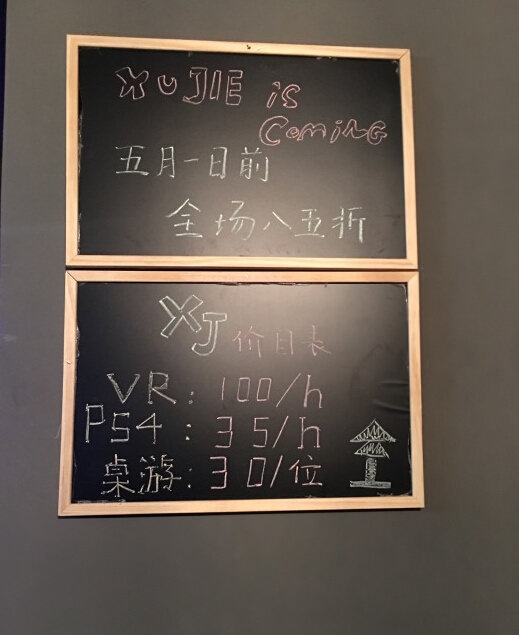 XUJIE is
Coming
五月一日前
全场八五折
XJ 价目表
VR: 100/h
PS4: 35/h
桌游: 30/位